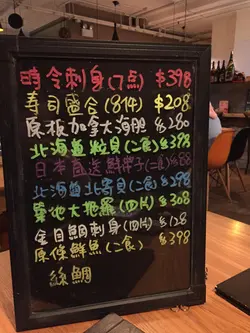 時令刺身(7点) $398
寿司盛合(8件) $208
原板加拿大海胆 $280
北海道粒貝(二食) $398
日本直送鮮帶子(二食) $
北海道北寄貝(二食) $298
築地大拖羅(四片) $308
金目鯛刺身(四片) $128
原條鮮魚(二食) $398
絲鯛